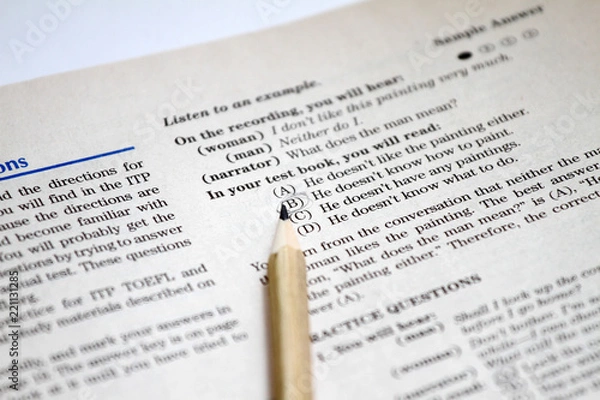 Sample Answer
Listen to an example.
On the recording, you will hear:
(woman) I don't like this painting very much.
(man) Neither do I.
(narrator) What does the man mean?
In your test book, you will read:
(A) He doesn't like the painting either.
(B) He doesn't know how to paint.
(C) He doesn't have any paintings.
(D) He doesn't know what to do.
from the conversation that neither the
woman likes the painting. The best answer
"What does the man mean?" is (A), He
the painting either." Therefore, the correct
(A).
PRACTICE QUESTIONS
you will hear:
(man) Shall I lock up the
before I go home?
(woman) Don't bother. I'm
(man)
(woman)
ons
the directions for
will find in the ITP
the directions are
become familiar with
will probably get the
by trying to answer
test. These questions
for ITP TOEFL and
materials described on
and mark your answers in
The answer key is on page
it until you have tried to
Adobe Stock | #221131285